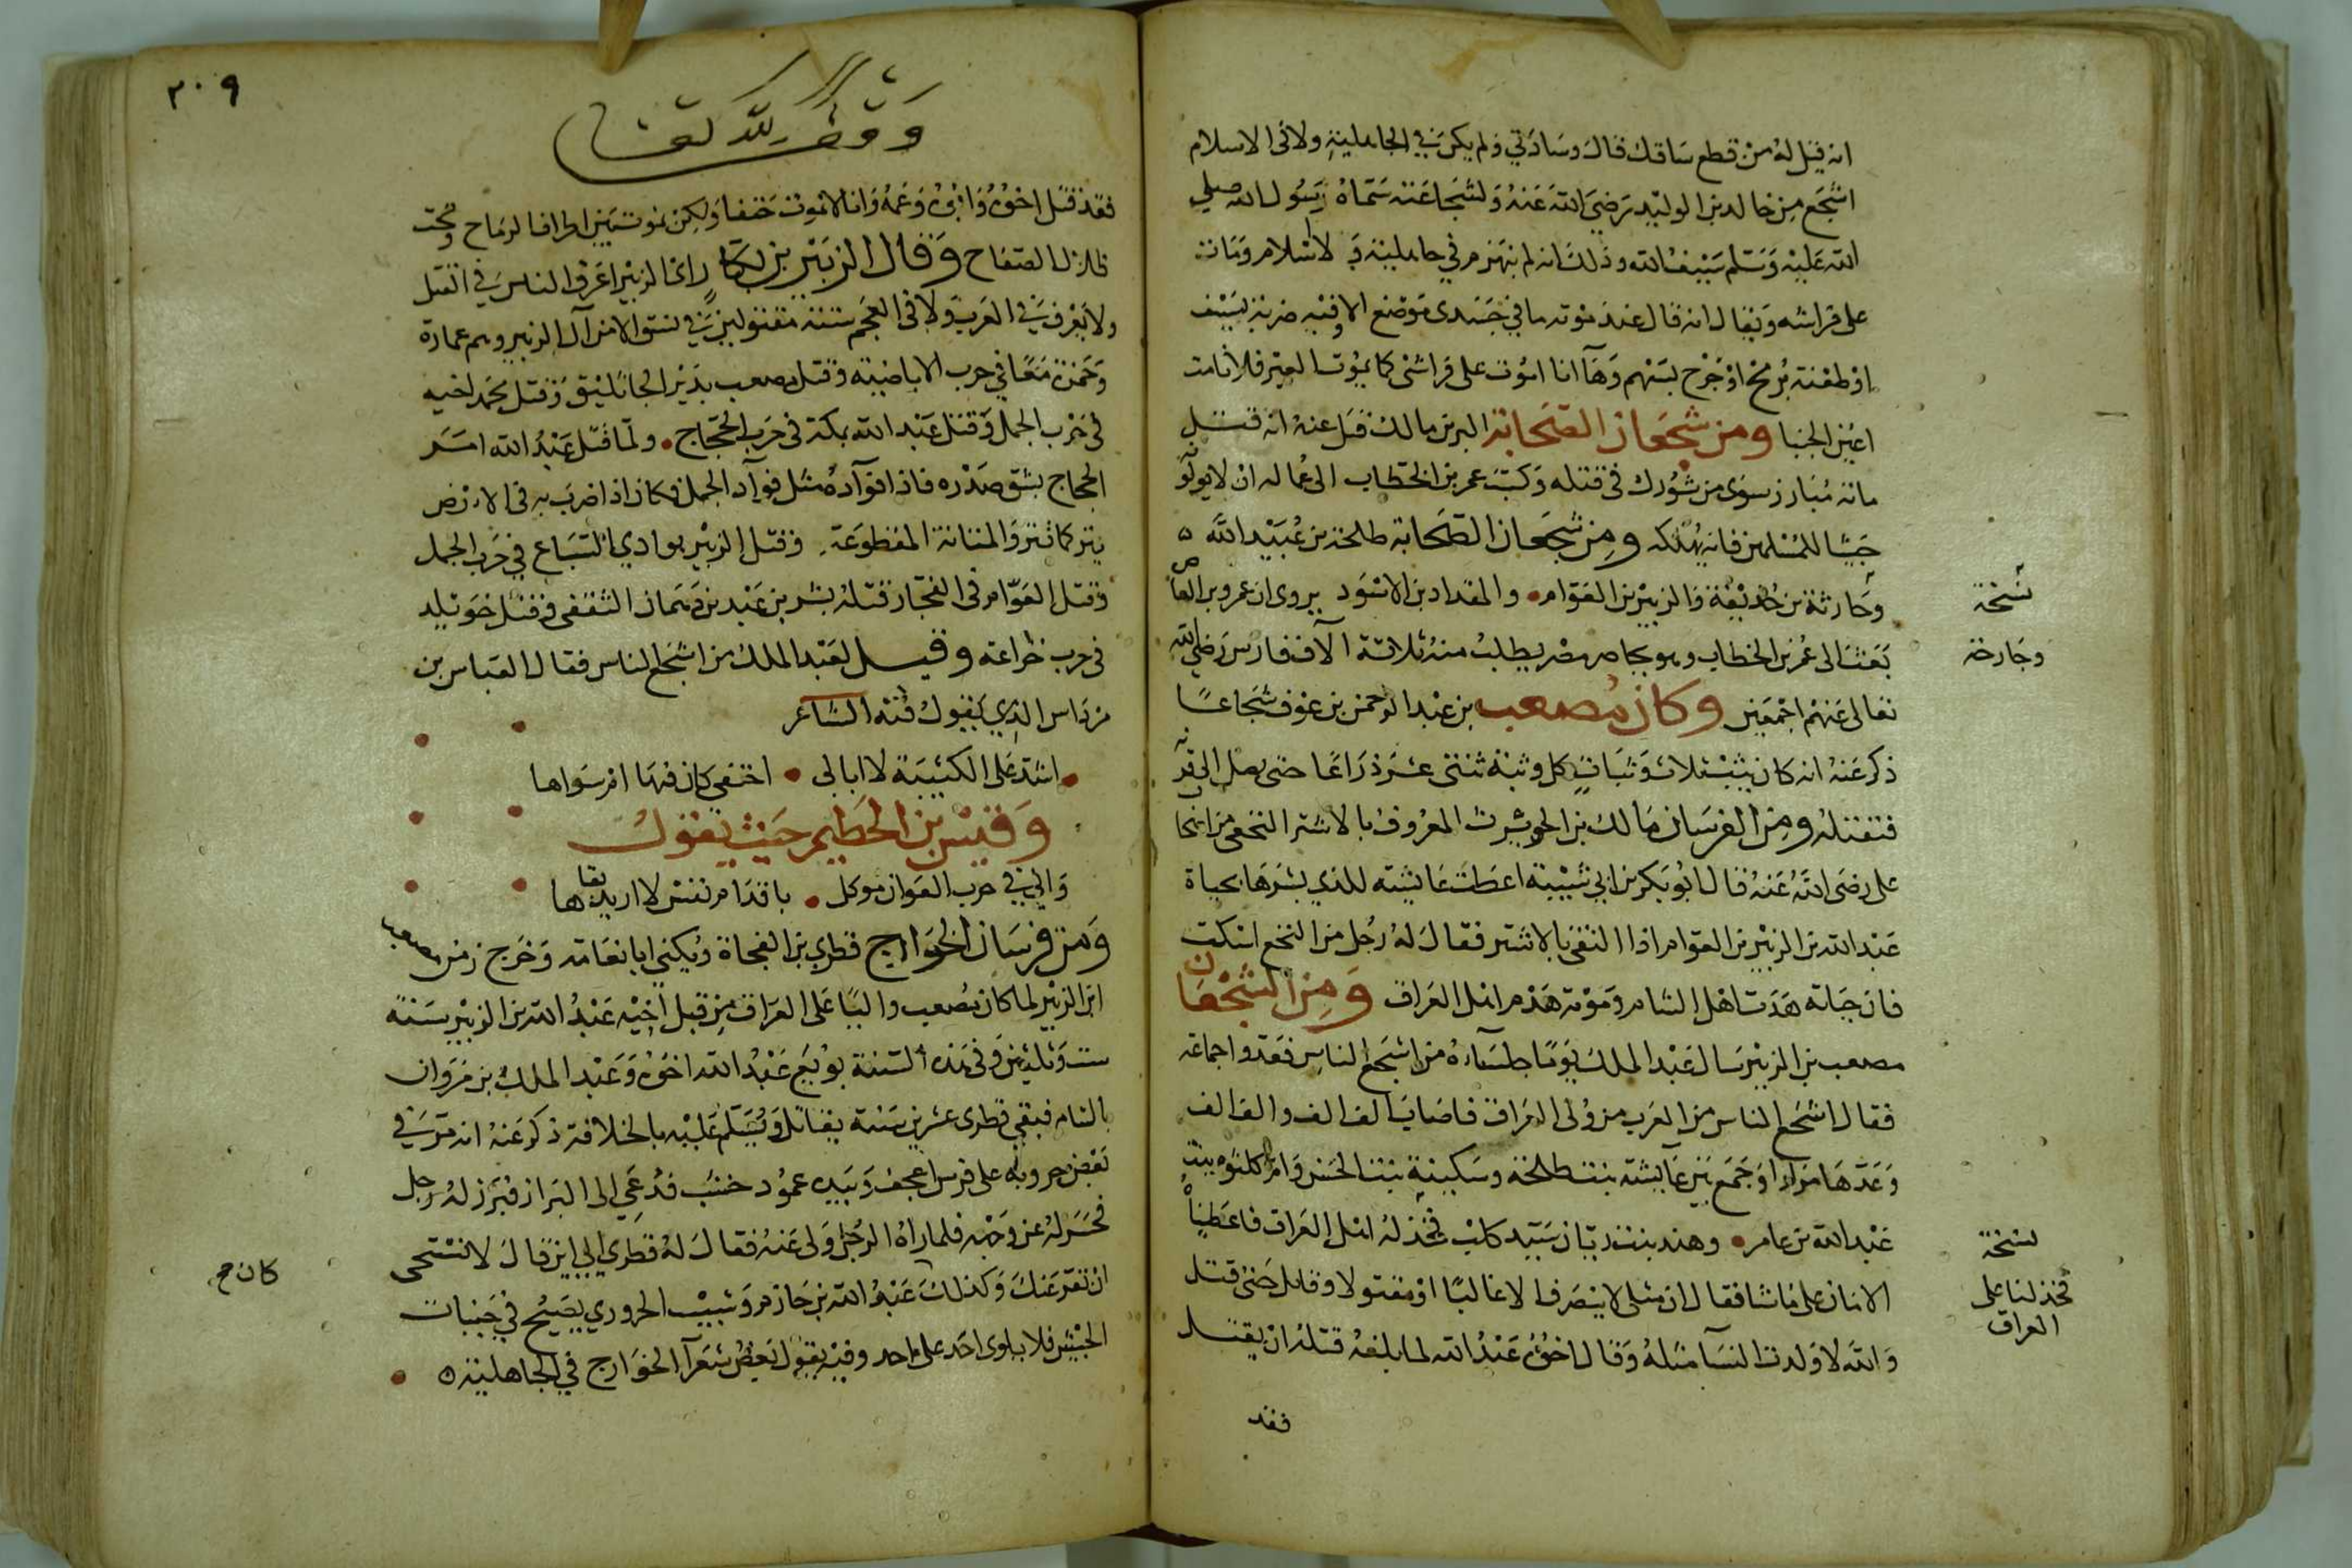 انه قيل له من قطع ساقك قال وسادتي ولم يكن في الجاهلية ولا في الاسلام
اشجع من خالد بن الوليد رضي الله عنه ولشجاعته سماه رسول الله صلى
الله عليه وسلم سيف الله وذلك انه لم ينهزم في جاهلية ولا اسلام ومات
على فراشه ويقال انه قال عند موته ما في جسدي موضع الا وفيه ضربة بسيف
او طعنة برمح او جرح بسهم وها انا اموت على فراشي كما يموت العير فلا نامت
اعين الجبنا ومن شجعان الصحابة البر بن مالك قيل عنه انه قتل
مائة مبارز سوى من شورك في قتله وكتب عمر بن الخطاب الى عماله ان لا يولوه
جيشا للمسلمين فانه يهلكه ومن شجعان الصحابة طلحة بن عبيد الله ه
وحارثة بن حذيفة والزبير بن العوام • والمقداد بن الاسود يروى ان عمرو بن العاص
بعث الى عمر بن الخطاب وهو يحاصر مصر يطلب منه ثلاثة آلاف فارس رضي الله
تعالى عنهم اجمعين وكان مصعب بن عبد الرحمن بن عوف شجاعا
ذكر عنه انه كان يثب ثلاث وثبات كل وثبة ثنتى عشر ذراعا حتى يصل الى قرنه
فتقتله ومن الفرسان مالك بن الحويرث المعروف بالاشتر النخعي من اصحاب
على رضى الله عنه قال ابو بكر بن ابي شيبة اعطت عائشة للذي بشرها بحياة
عبد الله بن الزبير بن العوام اذا التقى بالاشتر فقال له رجل من النخع اسكت
فان حياته هدت اهل الشام وموته هدم اهل العراق ومن الشجعان
مصعب بن الزبير سال عبد الملك يوما جلساءه من اشجع الناس فعدوا جماعة
فقال اشجع الناس من العرب من ولى العراق فاصاب الف الف والف الف
وعدها مرارا وجمع بين عآيشة بنت طلحة وسكينة بنت الحسن وام كلثوم بنت
عبد الله بن عامر • وهند بنت ريان سيد كلب فخذله اهل العراق فاعطيناه
الامان على ما شا فقال ان مثلى لا ينصرف الا غالبا او مقتولا وقاتل حتى قتل
والله لا ولدت النسآ مثله وقال اخوه عبد الله لما بلغه قتله ان يقتل
فقد
نسخة
وجارحة
نسخة
فخذلنا على
العراق
٢٠٩
وقف لله تعالى
فقد قتل اخوه وابوه وعمه وانا لا نموت حتفا ولكن نموت بين اطراف الرماح وتحت
ظلال الصفاح وقال الزبير بن بكار راى الزبير اعرق الناس في القتل
ولا يعرف في العرب ولا في العجم ستة مقتولين في نسق الا من آل الزبير وهم عمارة
وحمزة معا في حرب الاباضية وقتل مصعب بدير الجاثليق وقتل محمد اخيه
في حرب الجمل وقتل عبد الله بمكة في حرب الحجاج • ولما قتل عبد الله امر
الحجاج بشق صدره فاذا فؤآده مثل فؤآد الجمل فكان اذا ضرب به في الارض
ينتر كما تنتر والمثانة المقطوعة وقتل الزبير بوادي السباع في حرب الجمل
وقتل العوام في الفجار قتله بشر بن عبد بن دهمان الثقفي وقتل خويلد
في حرب خزاعة وقيل لعبد الملك من اشجع الناس فقال العباس بن
مرداس الذي يقول فيه الشاعر
• اشد على الكتيبة لا ابالى • احتفي كان فيها ام سواها
وقيس بن الحطيم حيث يقول
واني في حرب العوان موكل • باقدام نفس لا اريد بقاها
ومن فرسان الخوارج قطري بن الفجاة ويكني ابا نعامة وخرج زمن مصعب
ابن الزبير لما كان مصعب واليا على العراق من قبل اخيه عبد الله بن الزبير سنة
ست وثلاثين وفى هذه السنة بويع عبد الله اخوه وعبد الملك بن مروان
بالشام فبقى قطرى عشرين سنة يقاتل ويسلم عليه بالخلافة ذكر عنه انه مر في
بعض حروبه على فرس اعجف وبيده عمود خشب فدعي الى البراز فبرز له رجل
فحسر له عن وجهه فلما راه الرجل ولى عنه فقال له قطري الى اين قال لا تستحى
ان تفر عنك وكذلك عبد الله بن حازم وشبيب الحروري يصيح في جنبات
الجيش فلا يلوى احد على احد وفيه يقول بعض شعرآ الخوارج في الجاهلية ه •
كان ح